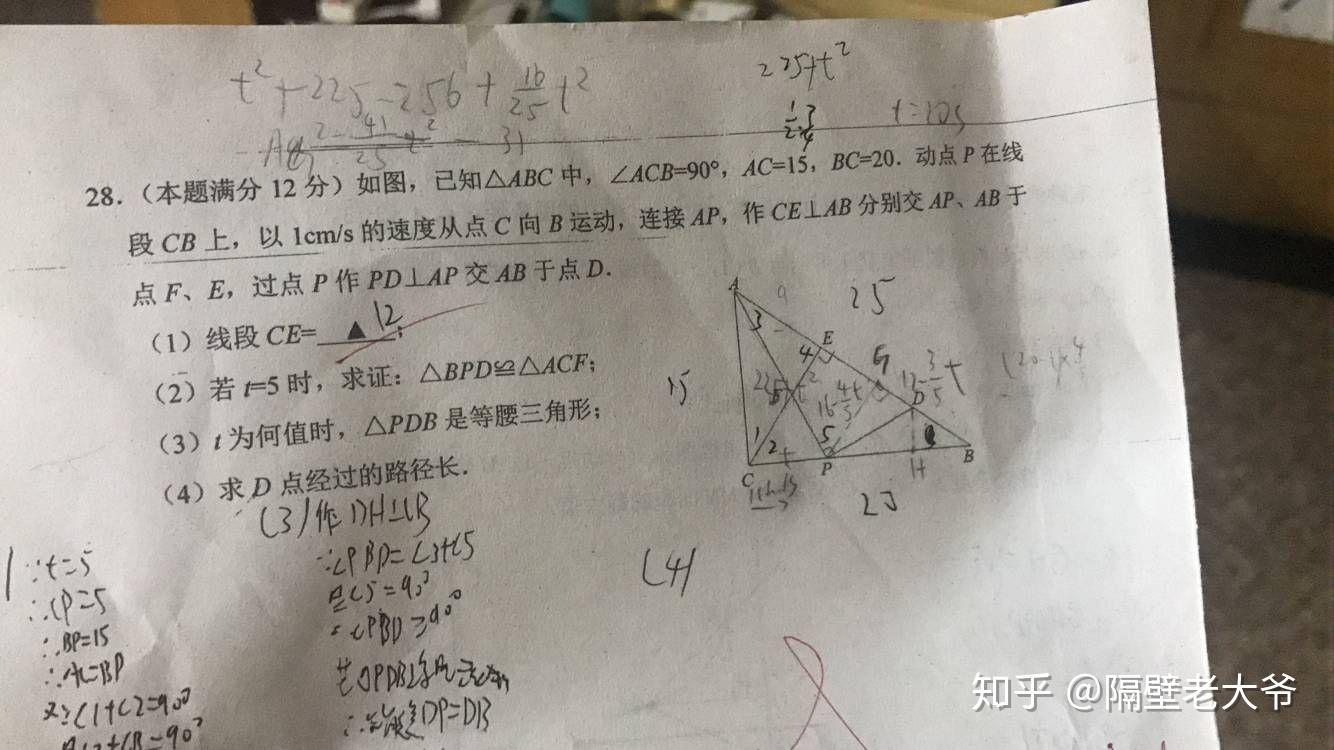 t²+225-256+16/25t²
225+t²
28．（本题满分 12 分）如图，已知△ABC 中，∠ACB=90°，AC=15，BC=20．动点 P 在线
段 CB 上，以 1cm/s 的速度从点 C 向 B 运动，连接 AP，作 CE⊥AB 分别交 AP、AB 于
点 F、E，过点 P 作 PD⊥AP 交 AB 于点 D．
（1）线段 CE=▲12；
（2）若 t=5 时，求证：△BPD≌△ACF；
（3）t 为何值时，△PDB 是等腰三角形；
（4）求 D 点经过的路径长．
A
9
25
3
E
4
G
15
16-4/5t
12-3/5t
1
2
t
5
C
P
H
B
(3)作DH⊥CB
∵∠PBD=∠3+∠5
∠5=90°
(4)
∵t=5
∴CP=5
∴BP=15
∴AC=BP
又∵∠1+∠2=90°
DP=DB
知乎 @隔壁老大爷